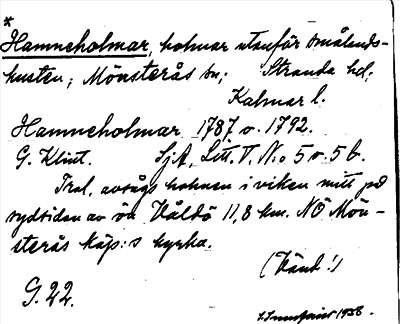 *
Hamneholmar, holmar utanför Smålands-
kusten; Mönsterås sn; Stranda hd;
Kalmar l.
Hamneholmar 1787 o. 1792.
G. Klint. SjA, Litt. V, N:o 5 o. 5 b.
Trol. avsågs holmen i viken mitt på
sydsidan av ön Våldö 11,8 km. NÖ Mön-
sterås köp:s kyrka.
(Känd!)
G. 22.
1938.